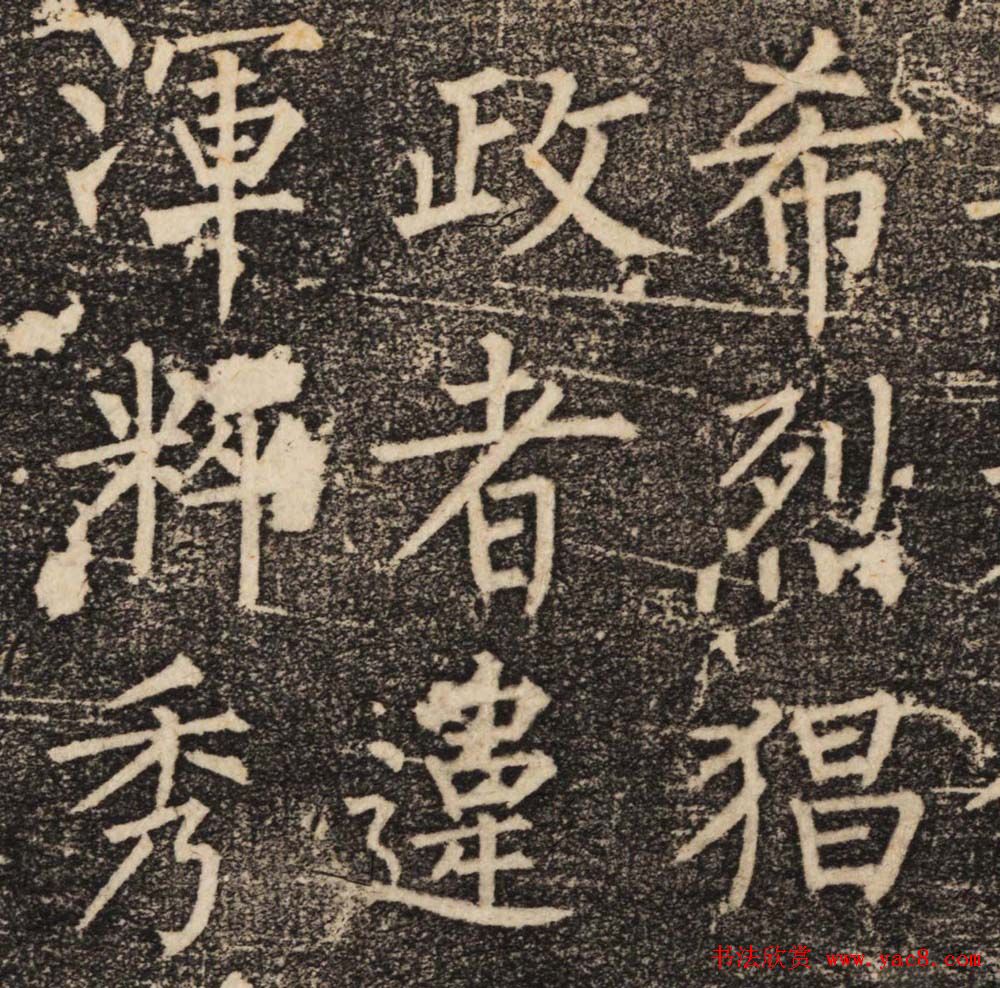 希烈猖
政者違
渾粹秀
书法欣赏 www.yac8.com